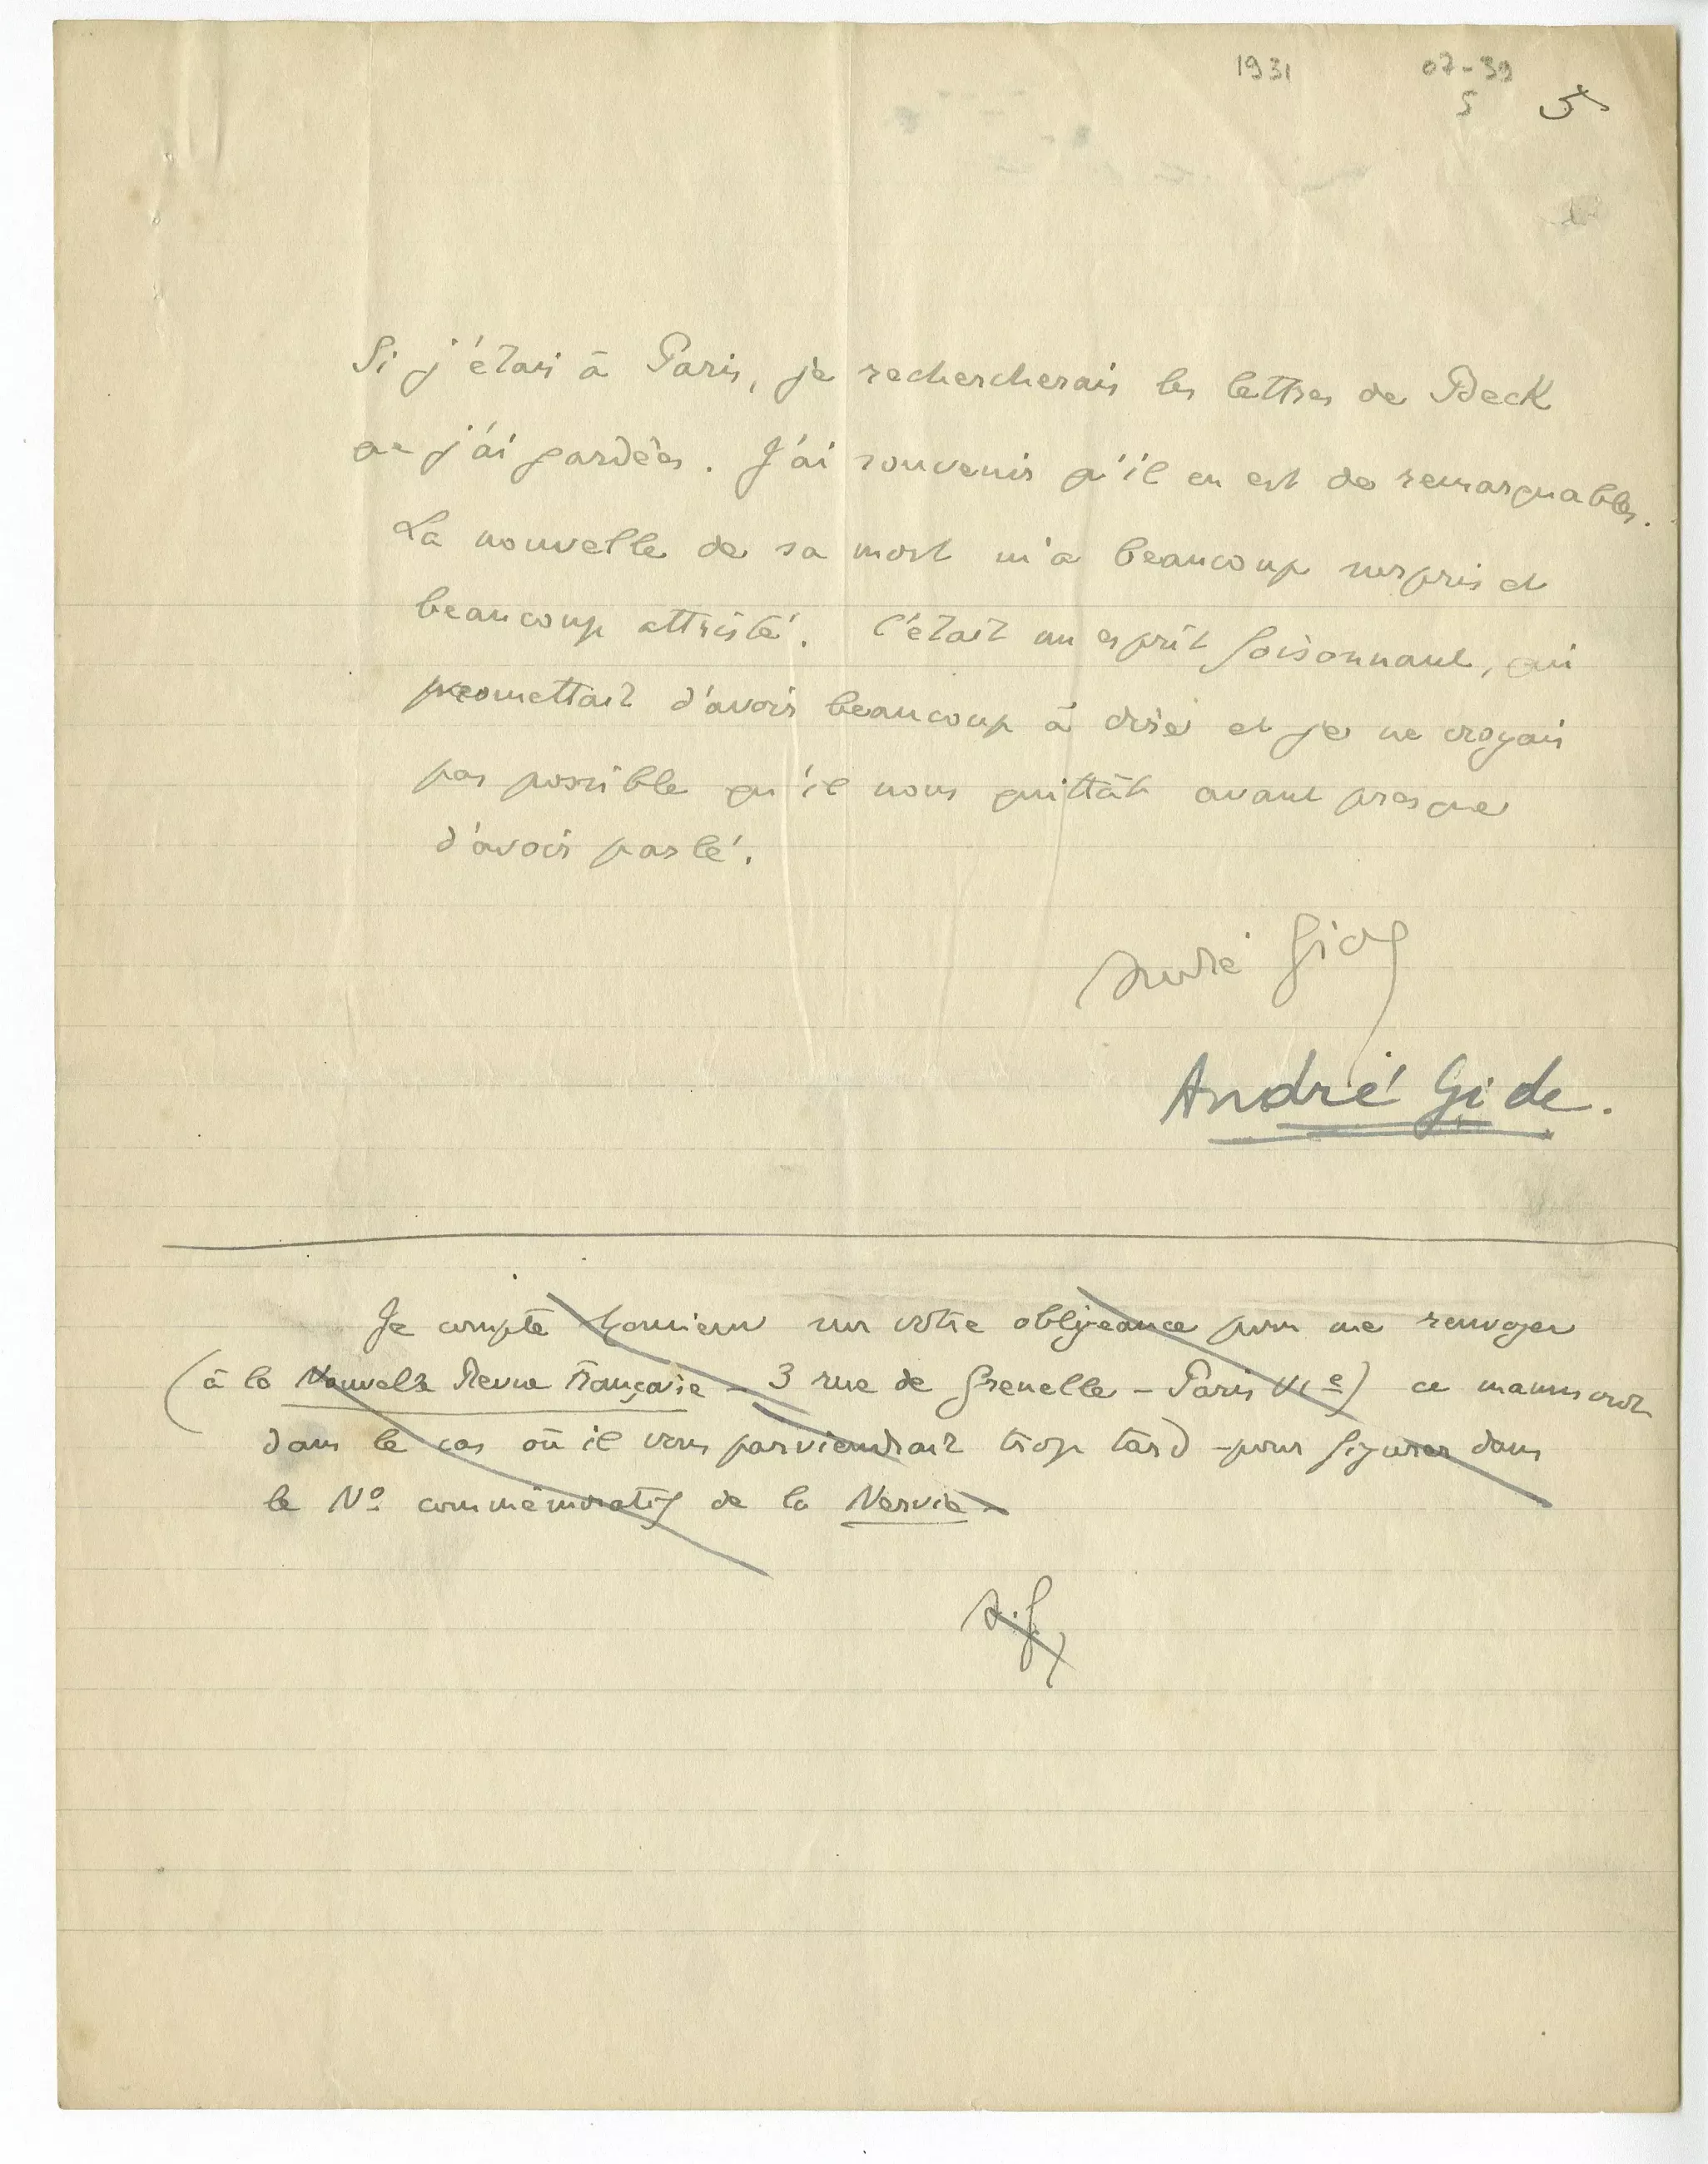 1931 07-39
5 5
Si j'étais à Paris, je rechercherais les lettres de Beck
que j'ai gardées. J'ai souvenir qu'il en est de remarquables.
La nouvelle de sa mort m'a beaucoup surpris et
beaucoup attristé. C'était un esprit foisonnant, qui
promettait d'avoir beaucoup à dire et je ne croyais
pas possible qu'il nous quittât avant presque
d'avoir parlé.
André Gide
André Gide.
Je compte Monsieur sur votre obligeance pour me renvoyer
(à la Nouvelle Revue Française - 3 rue de Grenelle - Paris VIe) ce manuscrit
dans le cas où il vous parviendrait trop tard pour figurer dans
le No commémoratif de la Nervie.
A.G.